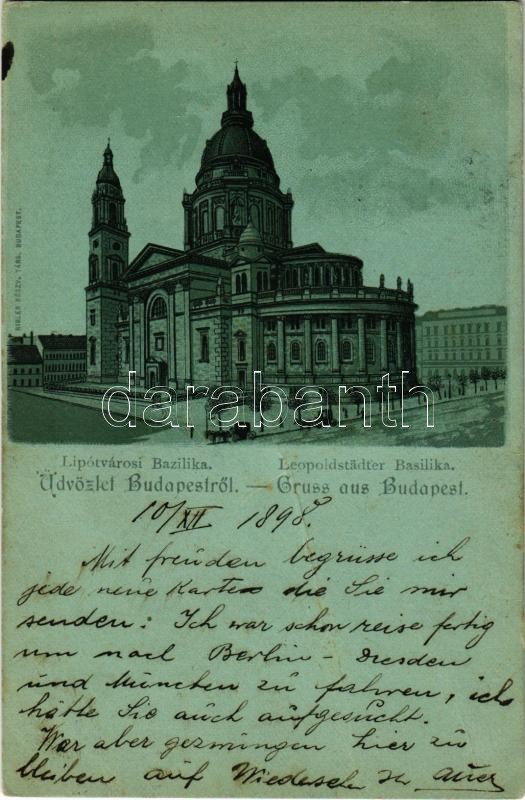 BIBLER RÉSZV. TÁRS. BUDAPEST.
darabanth
Lipótvárosi Bazilika. Leopoldstädter Basilika.
Üdvözlet Budapestről. — Gruss aus Budapest.
10/XII 1898.
Mit freuden begrüsse ich
jede neue Karte die Sie mir
senden: Ich war schon reise fertig
um nach Berlin - Dresden
und München zu fahren, ich
hätte Sie auch aufgesucht.
War aber gezwungen hier zu
bleiben auf Wiedersehn